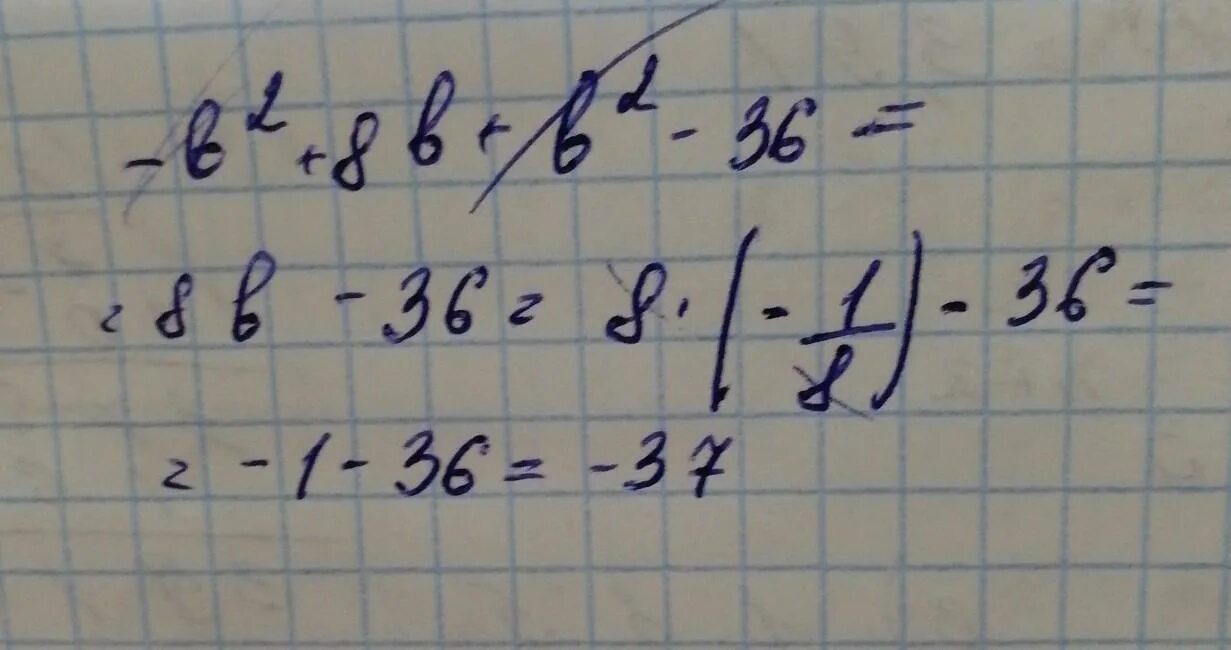 -b² + 8b + b² - 36 =
= 8b - 36 = 8 · (-1/8) - 36 =
= -1 - 36 = -37